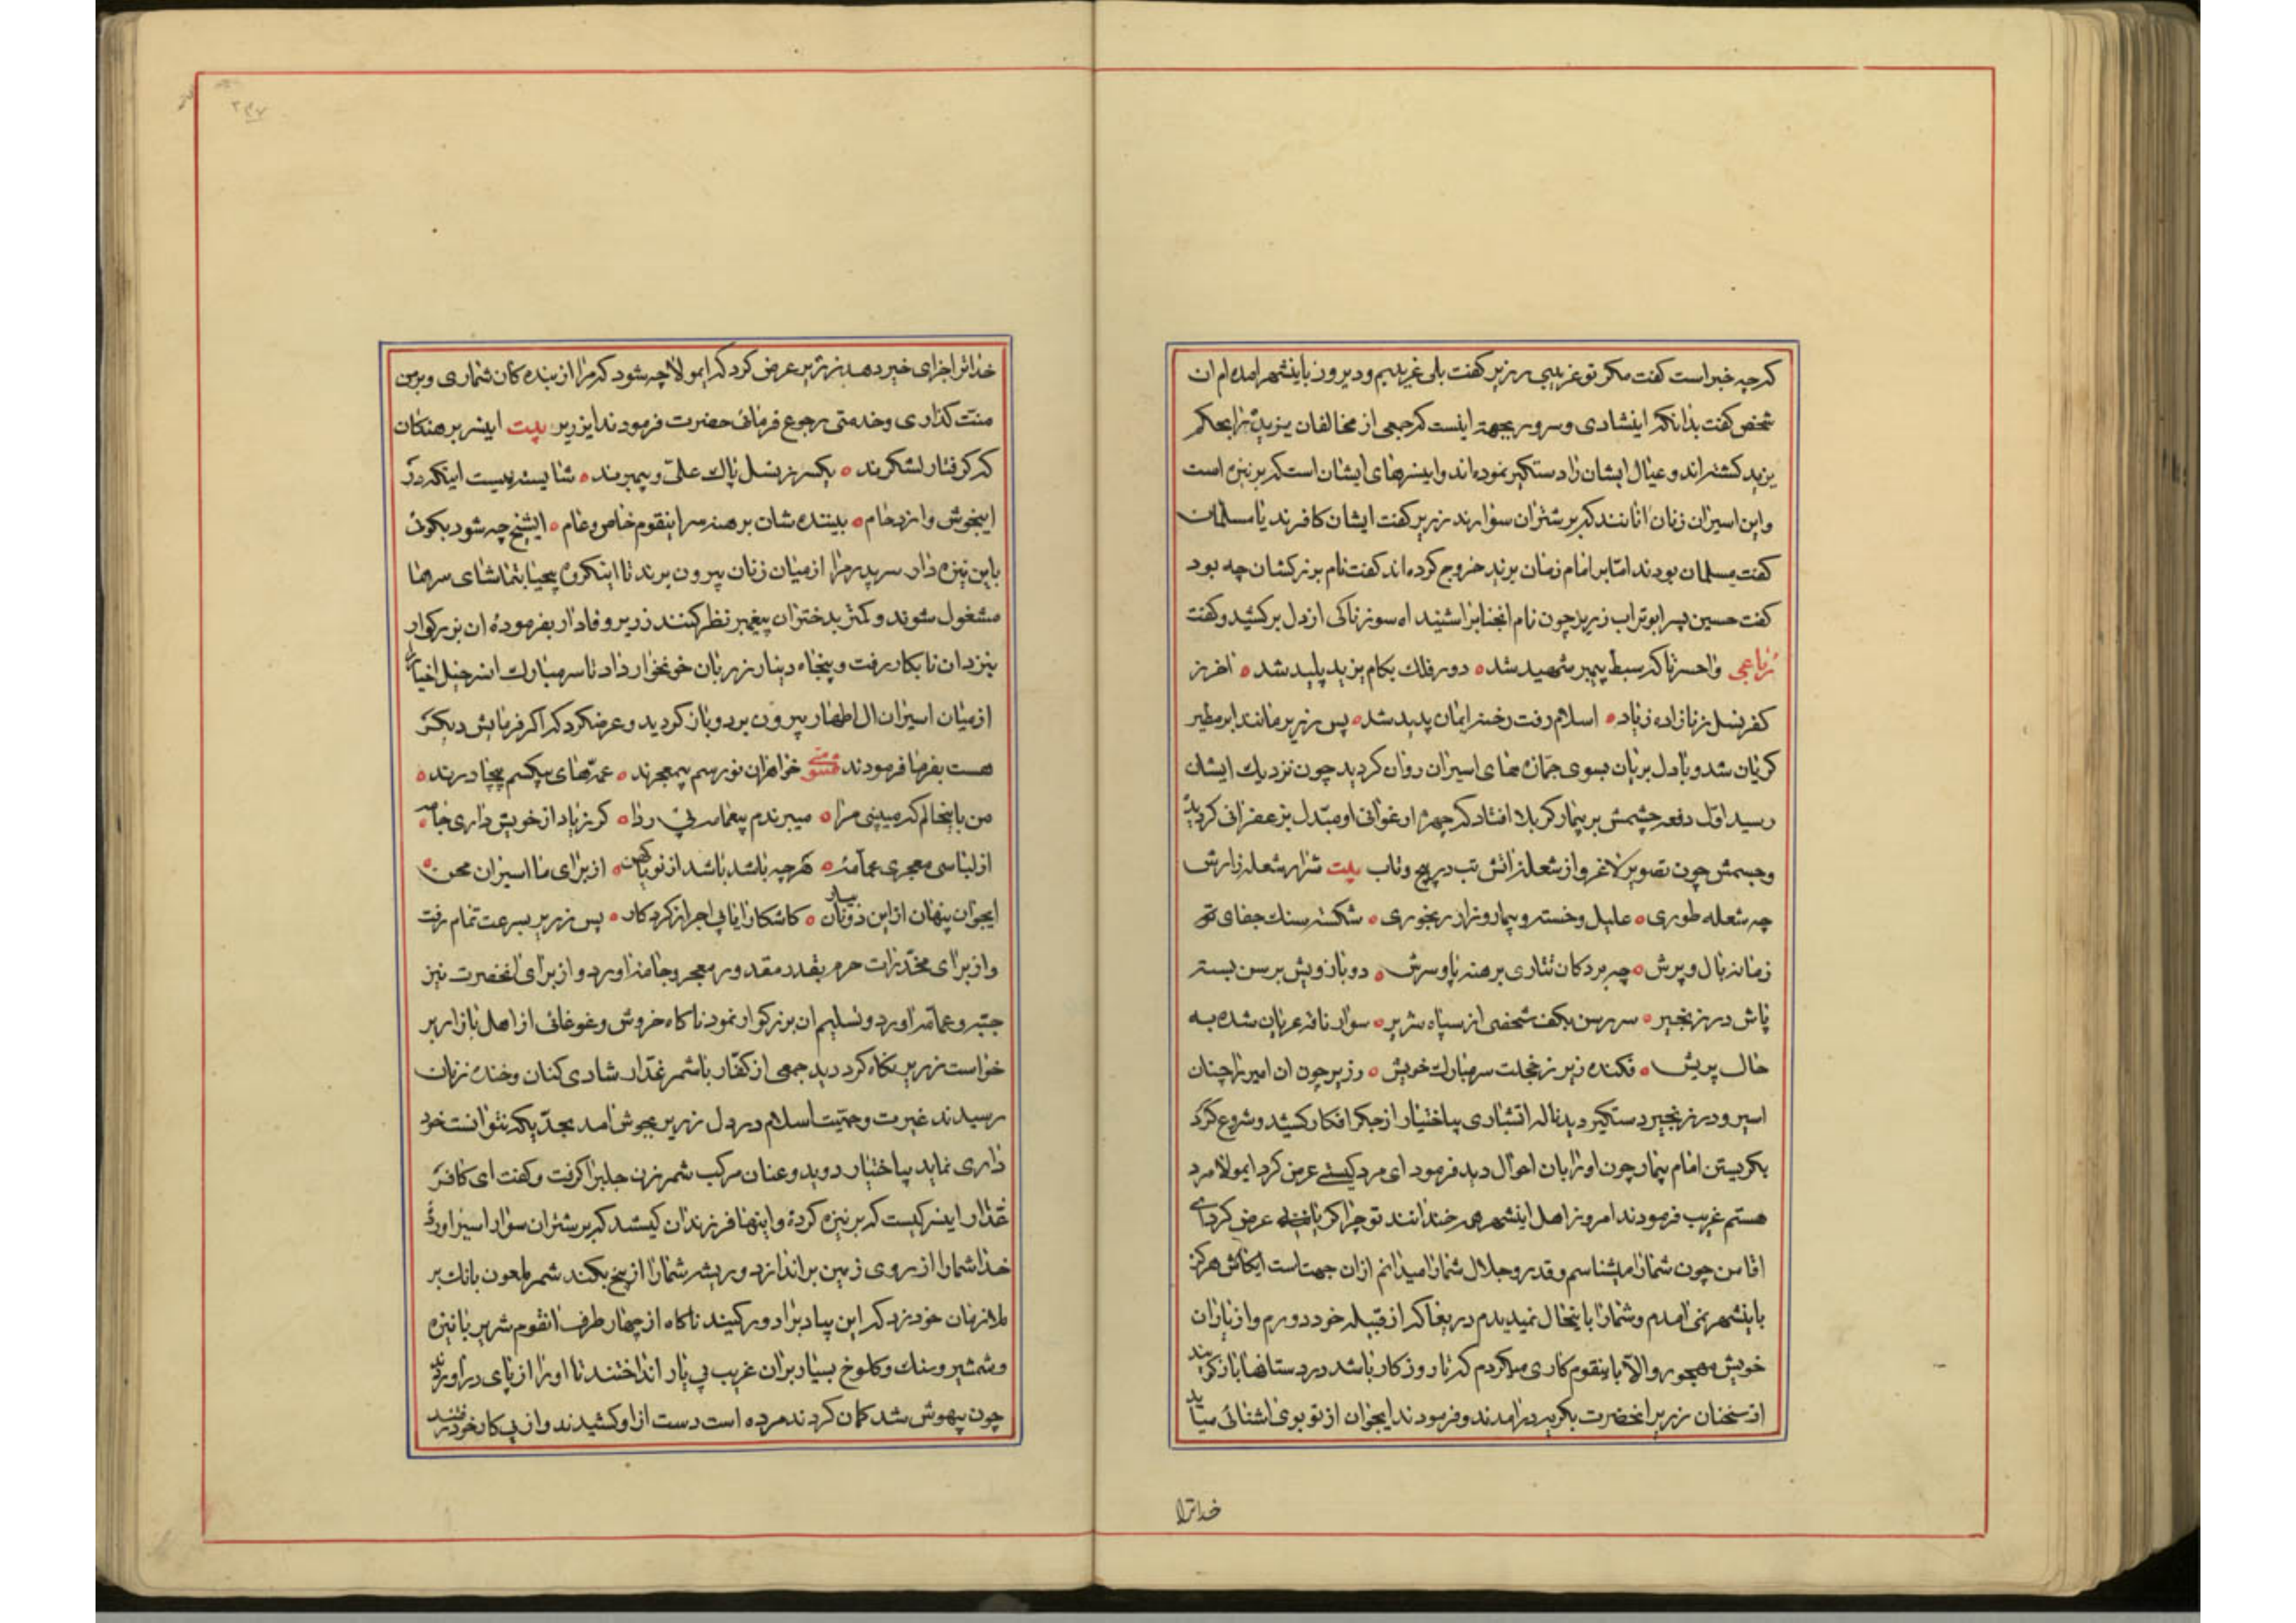 که چه خبر است گفت مگر تو غریبی زریر گفت بلی غریبم و دیروز باینشهر امده‌ام ان
شخص گفت بدانکه اینشادی و سرور بجهة اینست که جمعی از مخالفان یزید را بحکم
یزید کشته‌اند و عیال ایشان را دستگیر نموده‌اند و این سرهای ایشان است که بر نیزه است
و این اسیران زنان انانند که بر شتران سوارند زریر گفت ایشان کافرند یا مسلمان
گفت مسلمان بودند امّا بر امام زمان یزید خروج کرده‌اند گفت نام بزرکشان چه بود
گفت حسین پسر ابوتراب زریر چون نام انجناب را شنید اه سوزناکی از دل برکشید و گفت
رباعی واحسرتا که سبط پیمبر شهید شد ه دور فلک بکام یزید پلید شد ه اخر ز
کفر نسل زنا زاده زیاد ه اسلام رفت رخنه ایمان پدید شد ه پس زریر مانند ابر مطیر
گریان شد و با دل بریان بسوی جمازه‌های اسیران روان گردید چون نزدیک ایشان
رسید اول دفعه چشمش بر بیمار کربلا افتاد که چهره ارغوانی او مبدّل بزعفرانی گردیده
و جسمش چون تصویر لاغر و از شعله اتش تب در پیچ و تاب بیت شرار شعله زارش
چه شعله طوری ه علیل و خسته و بیمار و زار رنجوری ه شکسته سنک جفای تو
زمانه بال و پرش ه چه بردکان تتاری برهنه پا و سرش ه دو بازویش برسن بسته
پاش در زنجیر ه سر رسن بکف شخصی از سپاه شریر ه سوار ناقه عریان شده به
حال پریش ه فکنده زیر ز خجلت سر مبارک خویش ه زریر چون ان امیر را چنان
اسیر و در زنجیر دستگیر دید ناله اتشباری بیاختیار از جگر افکار کشید و شروع کرد
بگریستن امام بیمار چون او را بان احوال دید فرمود ای مرد کیستی عرض کرد ایمولا مرد
هستم غریب فرمودند امروز اهل اینشهر همه خندانند تو چرا گریانی عرض کرد ای
اقا من چون شما را میشناسم و قدر و جلال شما را میدانم از ان جهت است ایکاش هرگز
باینشهر نمی امدم و شما را باینحال نمیدیدم دریغا که از قبیله خود دورم و از یاران
خویش مهجور و الا با اینقوم کاری میکردم که تا روزگار باشد در دستانها بازگویند
از سخنان زریر انحضرت بگریه درامدند و فرمودند ایجوان از تو بوی اشنائی میاید
خدا ترا
خدا ترا جزای خیر دهد زریر عرض کرد که ایمولا چه شود که مرا از بنده کان شماری و بر من
منّت گذاری و خدمتی رجوع فرمائی حضرت فرمودند ایزریر بیت این سر برهنگان
که گرفتار لشکرند ه یکسر ز نسل پاک علیّ و پیمبرند ه شایسته نیست اینکه در
اینجوش و ازدحام ه بینند شان برهنه سر اینقوم خاص و عام ه ایشیخ چه شود بگوئی
باین نیزه دار سر پدر مرا از میان زنان بیرون برند تا اینگروه بیحیا بتماشای سرها
مشغول شوند و کمتر بدختران پیغمبر نظر کنند زریر وفادار بفرموده ان بزرگوار
بنزد ان نابکار رفت و پنجاه دینار زر بان خونخوار داد تا سر مبارک ان سر خیل اخیار را
از میان اسیران ال اطهار بیرون برد و باز گردید و عرضکرد که اگر فرمایش دیگر
هست بفرما فرمودند مثنوی خواهران نورسم بیمعجرند ه عمه‌های بیکسم بیچادرند ه
من باینحالم که میبینی مرا ه میبرندم بیعمامه بی ردا ه گر زیاد از خویش داری جامه ه
از لباسی معجری عمامه ه هرچه باشد باشد از نو یا کهن ه از برای ما اسیران محن ه
ایجوان پنهان از این دونان بیار ه کاشکارا یابی اجر از کردگار ه پس زریر بسرعت تمام رفت
و از برای مخدّرات حرم بقدر مقدور معجر و جامه اورد و از برای انحضرت نیز
جبّه و عمامه اورد و تسلیم ان بزرگوار نمود ناگاه خروش و غوغائی از اهل بازار بر
خواست زریر نگاه کرد دید جمعی از کفّار با شمر غدّار شادی کنان و خنده زنان
رسیدند غیرت و حمیّت اسلام در دل زریر بجوش امد بحدّیکه نتوانست خود
داری نماید بیاختیار دوید و عنان مرکب شمر زن جلب را گرفت و گفت ای کافر
غدّار این سر کیست که بر نیزه کردهٔ و اینها فرزندان کیستند که بر شتران سوار اسیر اوردهٔ
خدا شما را از روی زمین براندازد و ریشه شما را از بیخ بکند شمر ملعون بانک بر
ملازمان خود زد که این بیادب را دور کنید ناگاه از چهار طرف انقوم شریر با نیزه
و شمشیر و سنک و کلوخ بسیار بران غریب بی یار انداختند تا او را از پای دراوردند
چون بیهوش شد گمان کردند مرده است دست از او کشیدند و از پی کار خود رفتند